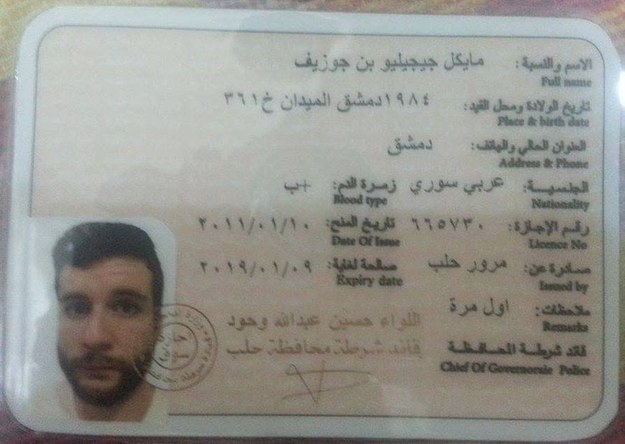 الاسم والنسبة: مايكل جيجيليو بن جوزيف
Full name
تاريخ الولادة ومحل القيد: ١٩٨٤ دمشق الميدان خ ٣٦١
Place & birth date
العنوان الحالي والهاتف: دمشق
Address & Phone
الجنسيـــة: عربي سوري زمـرة الدم: ب+
Nationality Blood type
رقـم الإجازة: ٦٦٥٧٣٠ تاريخ المنح: ٢٠١١/٠١/١٠
Licence No Date Of Issue
صـادرة عن: مرور حلب صالحة لغاية: ٢٠١٩/٠١/٠٩
Issued by Expiry date
ملاحظات: اول مرة
Remarks
اللواء حسين عبدالله وحود
قائد شرطة محافظة حلب
قائد شرطة المحـافظـة
Chief Of Governoraie Police